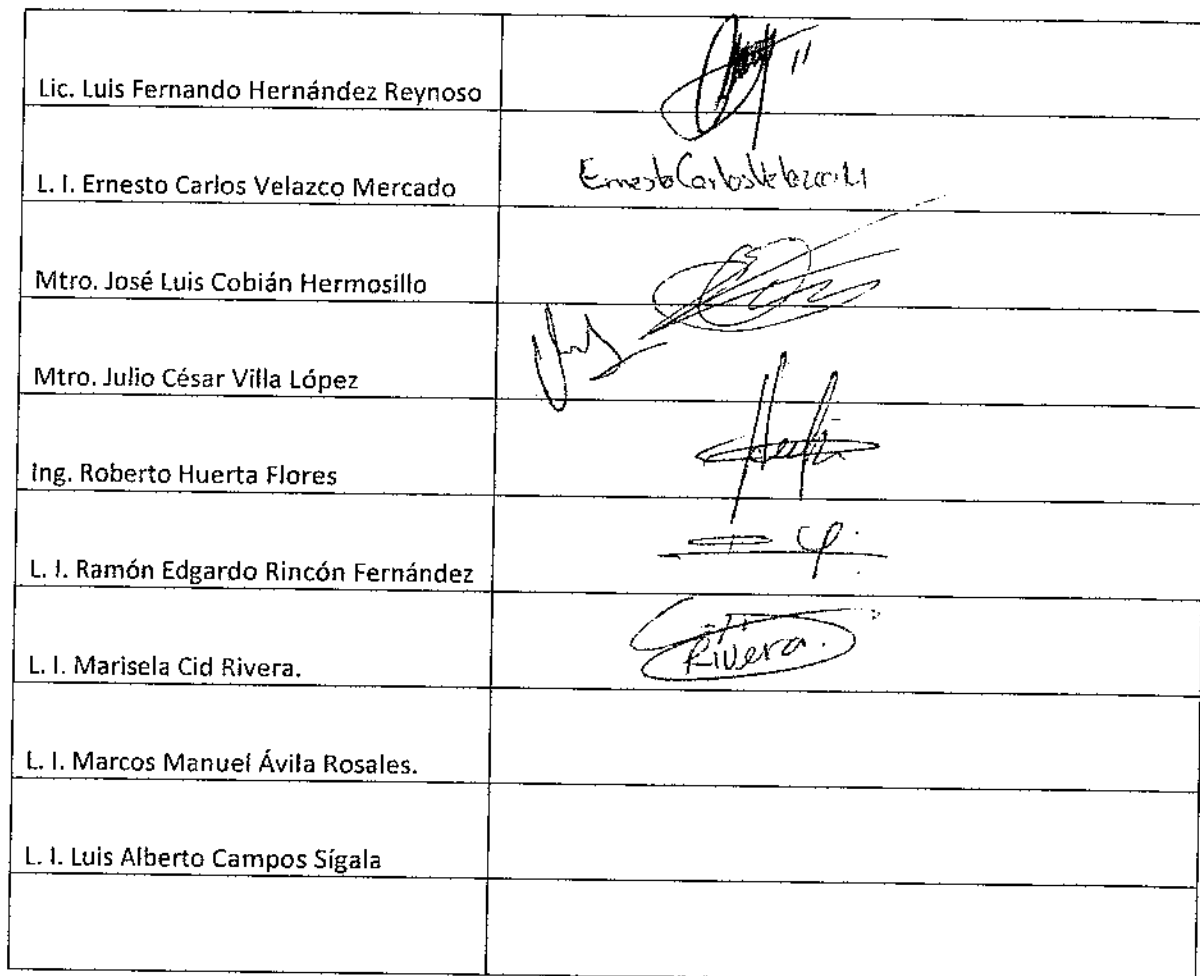 Lic. Luis Fernando Hernández Reynoso
L. I. Ernesto Carlos Velazco Mercado
Ernesto Carlos Velazco M
Mtro. José Luis Cobián Hermosillo
Mtro. Julio César Villa López
Ing. Roberto Huerta Flores
L. I. Ramón Edgardo Rincón Fernández
L. I. Marisela Cid Rivera.
Rivera.
L. I. Marcos Manuel Ávila Rosales.
L. I. Luis Alberto Campos Sígala